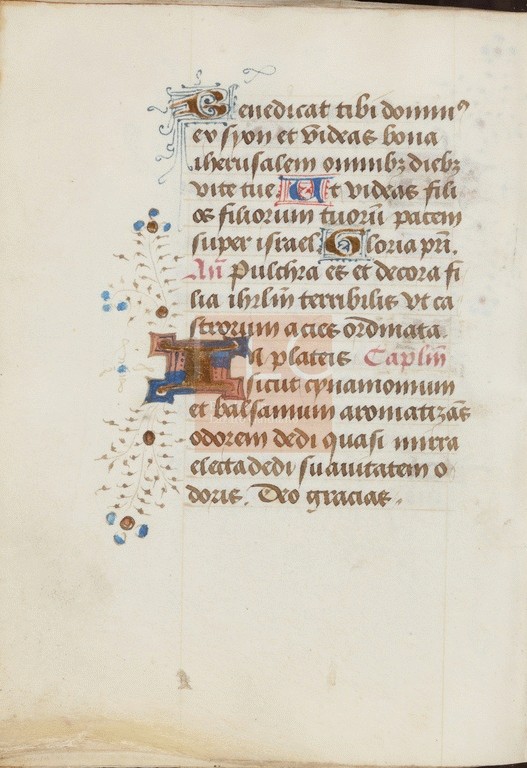 Benedicat tibi dominꝰ
ex syon et videas bona
iherusalem omnibꝫ diebꝫ
vite tue. Et videas fili
os filiorum tuorū pacem
super israel. Gloria pr̄i.
An̄ Pulchra es et decora fi
lia ihrl̄m terribilis vt ca
strorum acies ordinata.
In plateis Capl̄m
sicut cynamomum
et balsamum aromatizās
odorem dedi quasi mirra
electa dedi suauitatem o
doris. Deo gracias.